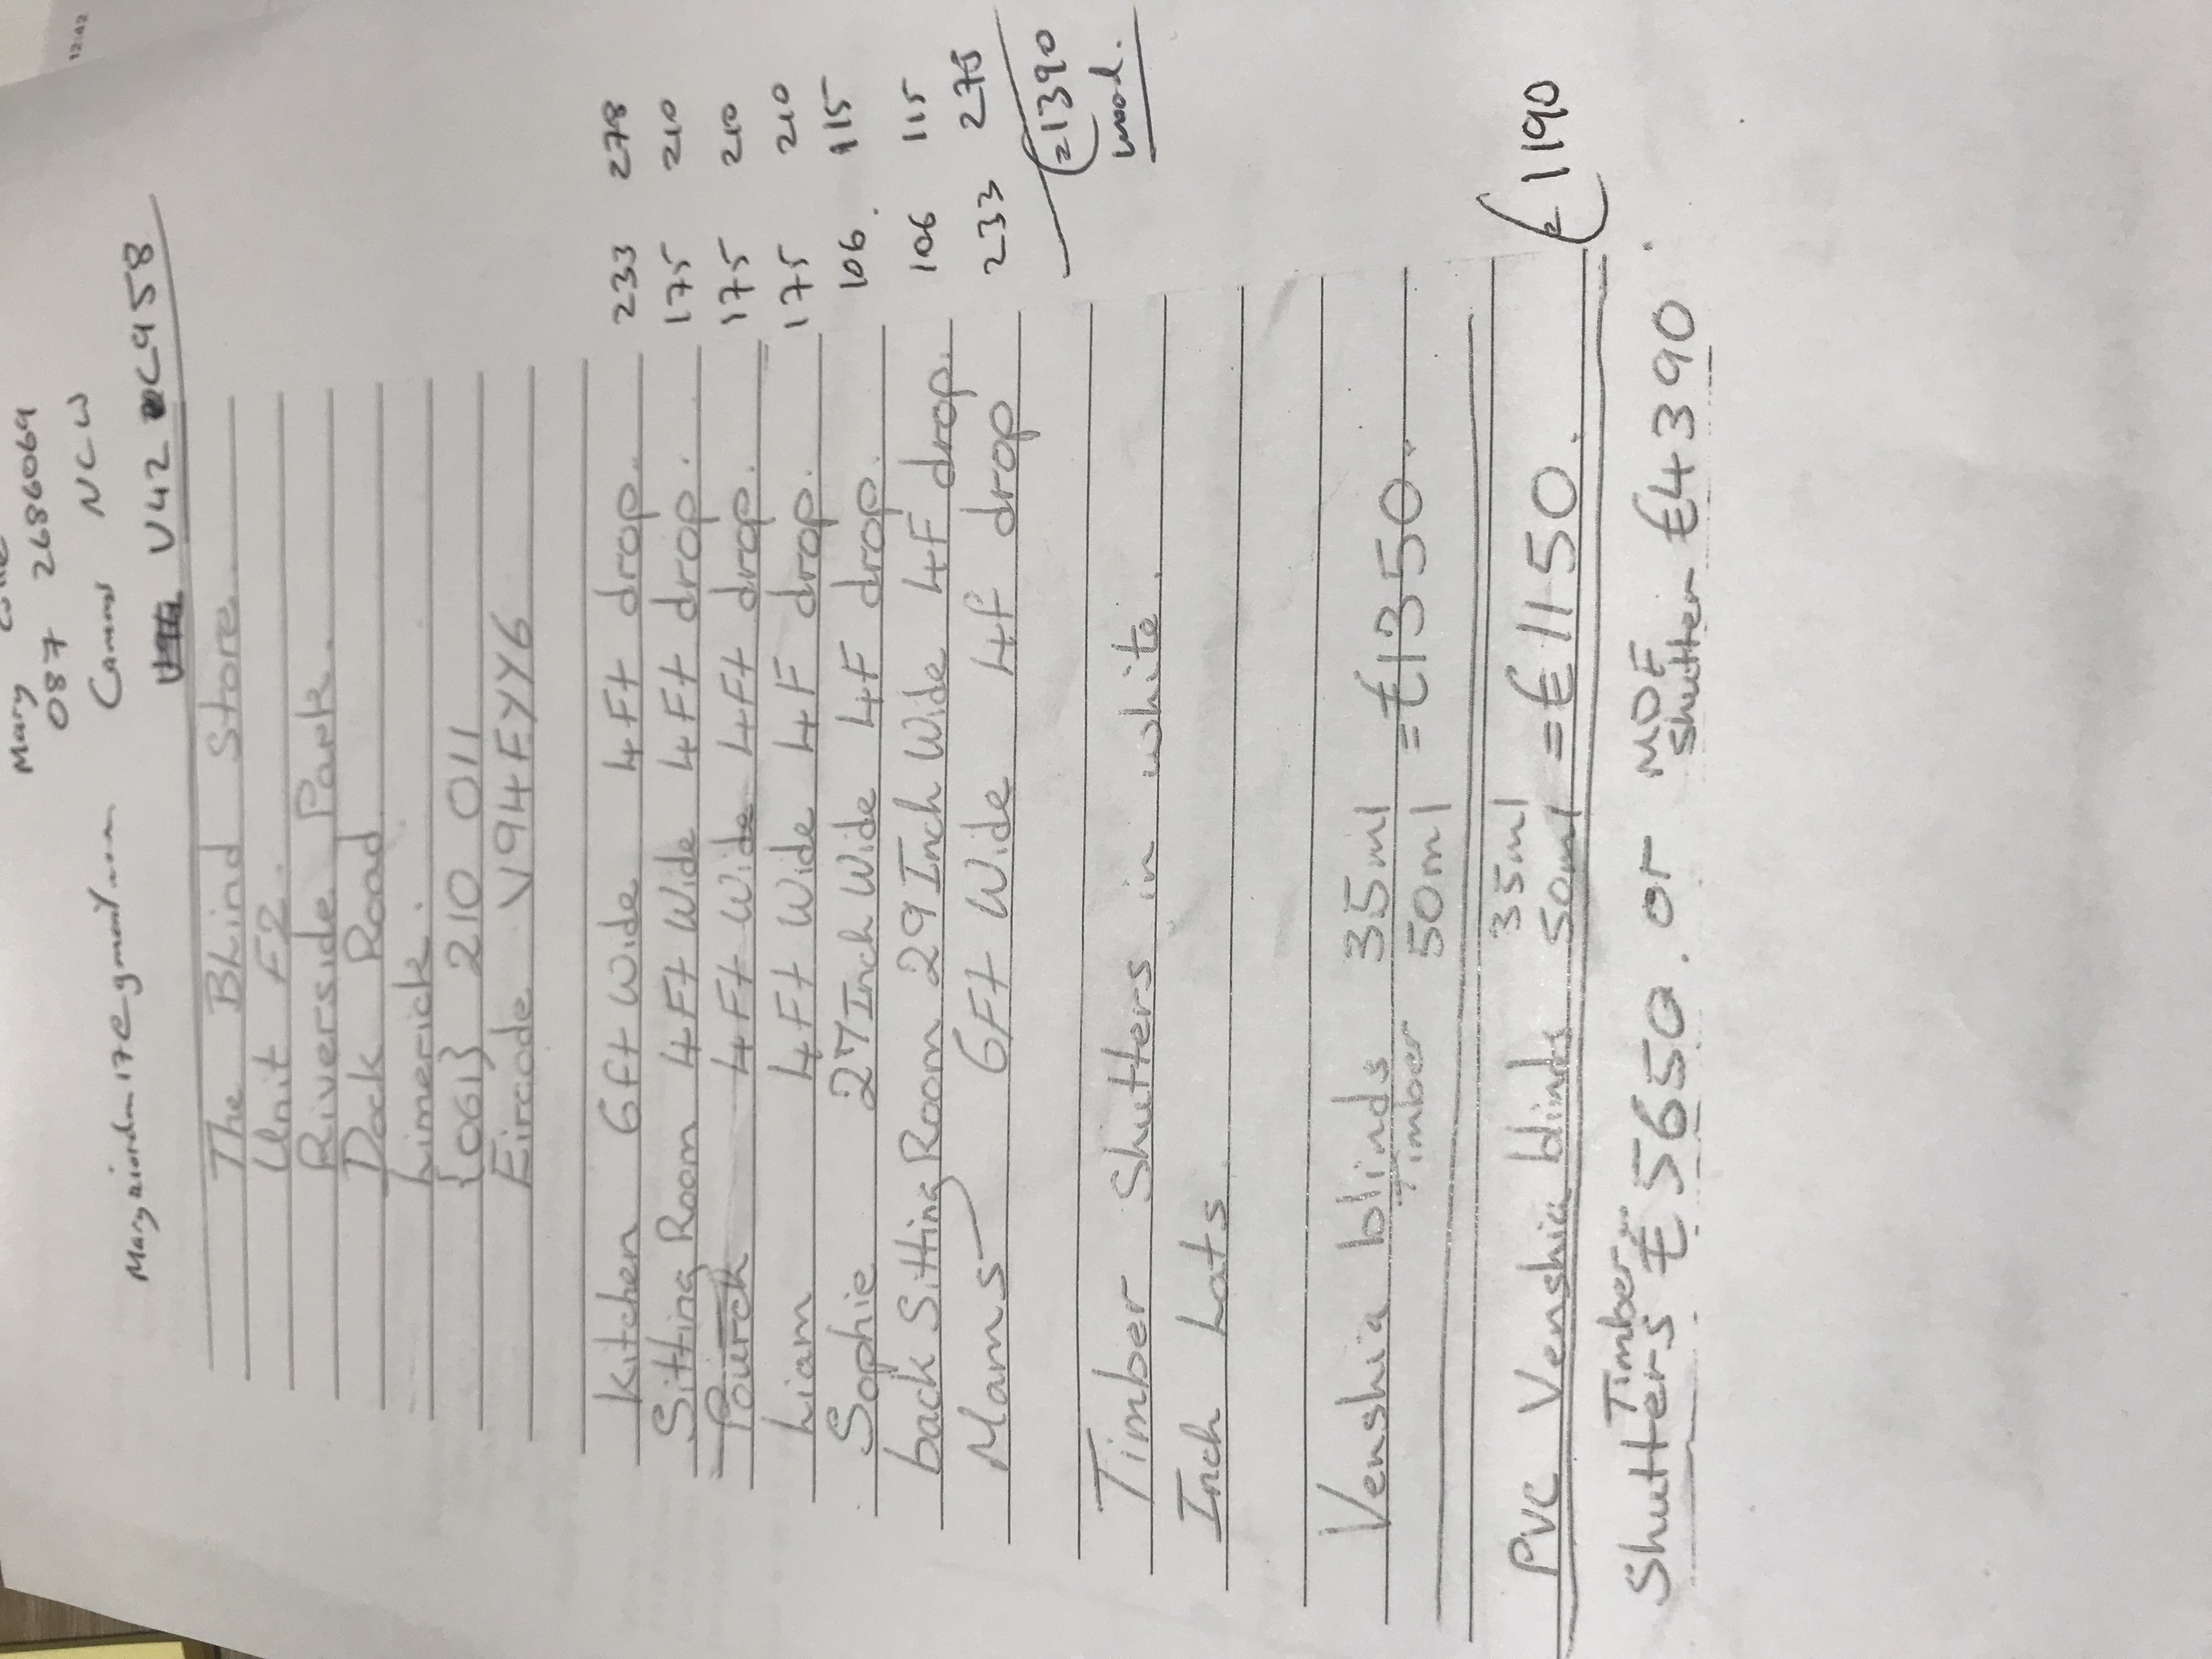 12:42
Mary
087 2686069
Cammas NCW
Maryriordan17@gmail....
V42 DC958
The Blind Store
Unit F2.
Riverside Park.
Dock Road
Limerick.
{061} 210 011
Eircode V94EYY6
Kitchen 6ft Wide 4Ft drop. 233 278
Sitting Room 4Ft Wide 4Ft drop. 175 210
Pourch 4Ft Wide 4Ft drop. 175 210
Liam 4Ft Wide 4F drop. 175 210
Sophie 27 Inch Wide 4F drop. 106. 115
back Sitting Room 29 Inch Wide 4F drop. 106 115
Mams 6Ft Wide 4f drop 233 275
€1390
wood.
Timber Shutters in white.
Inch Lats
Venshia blinds 35ml
Timber 50ml = €1350.
35ml
PVC Venshia blinds 50ml = €1150. €1190
Timber
Shutters €5650. or MDF Shutter €4390.